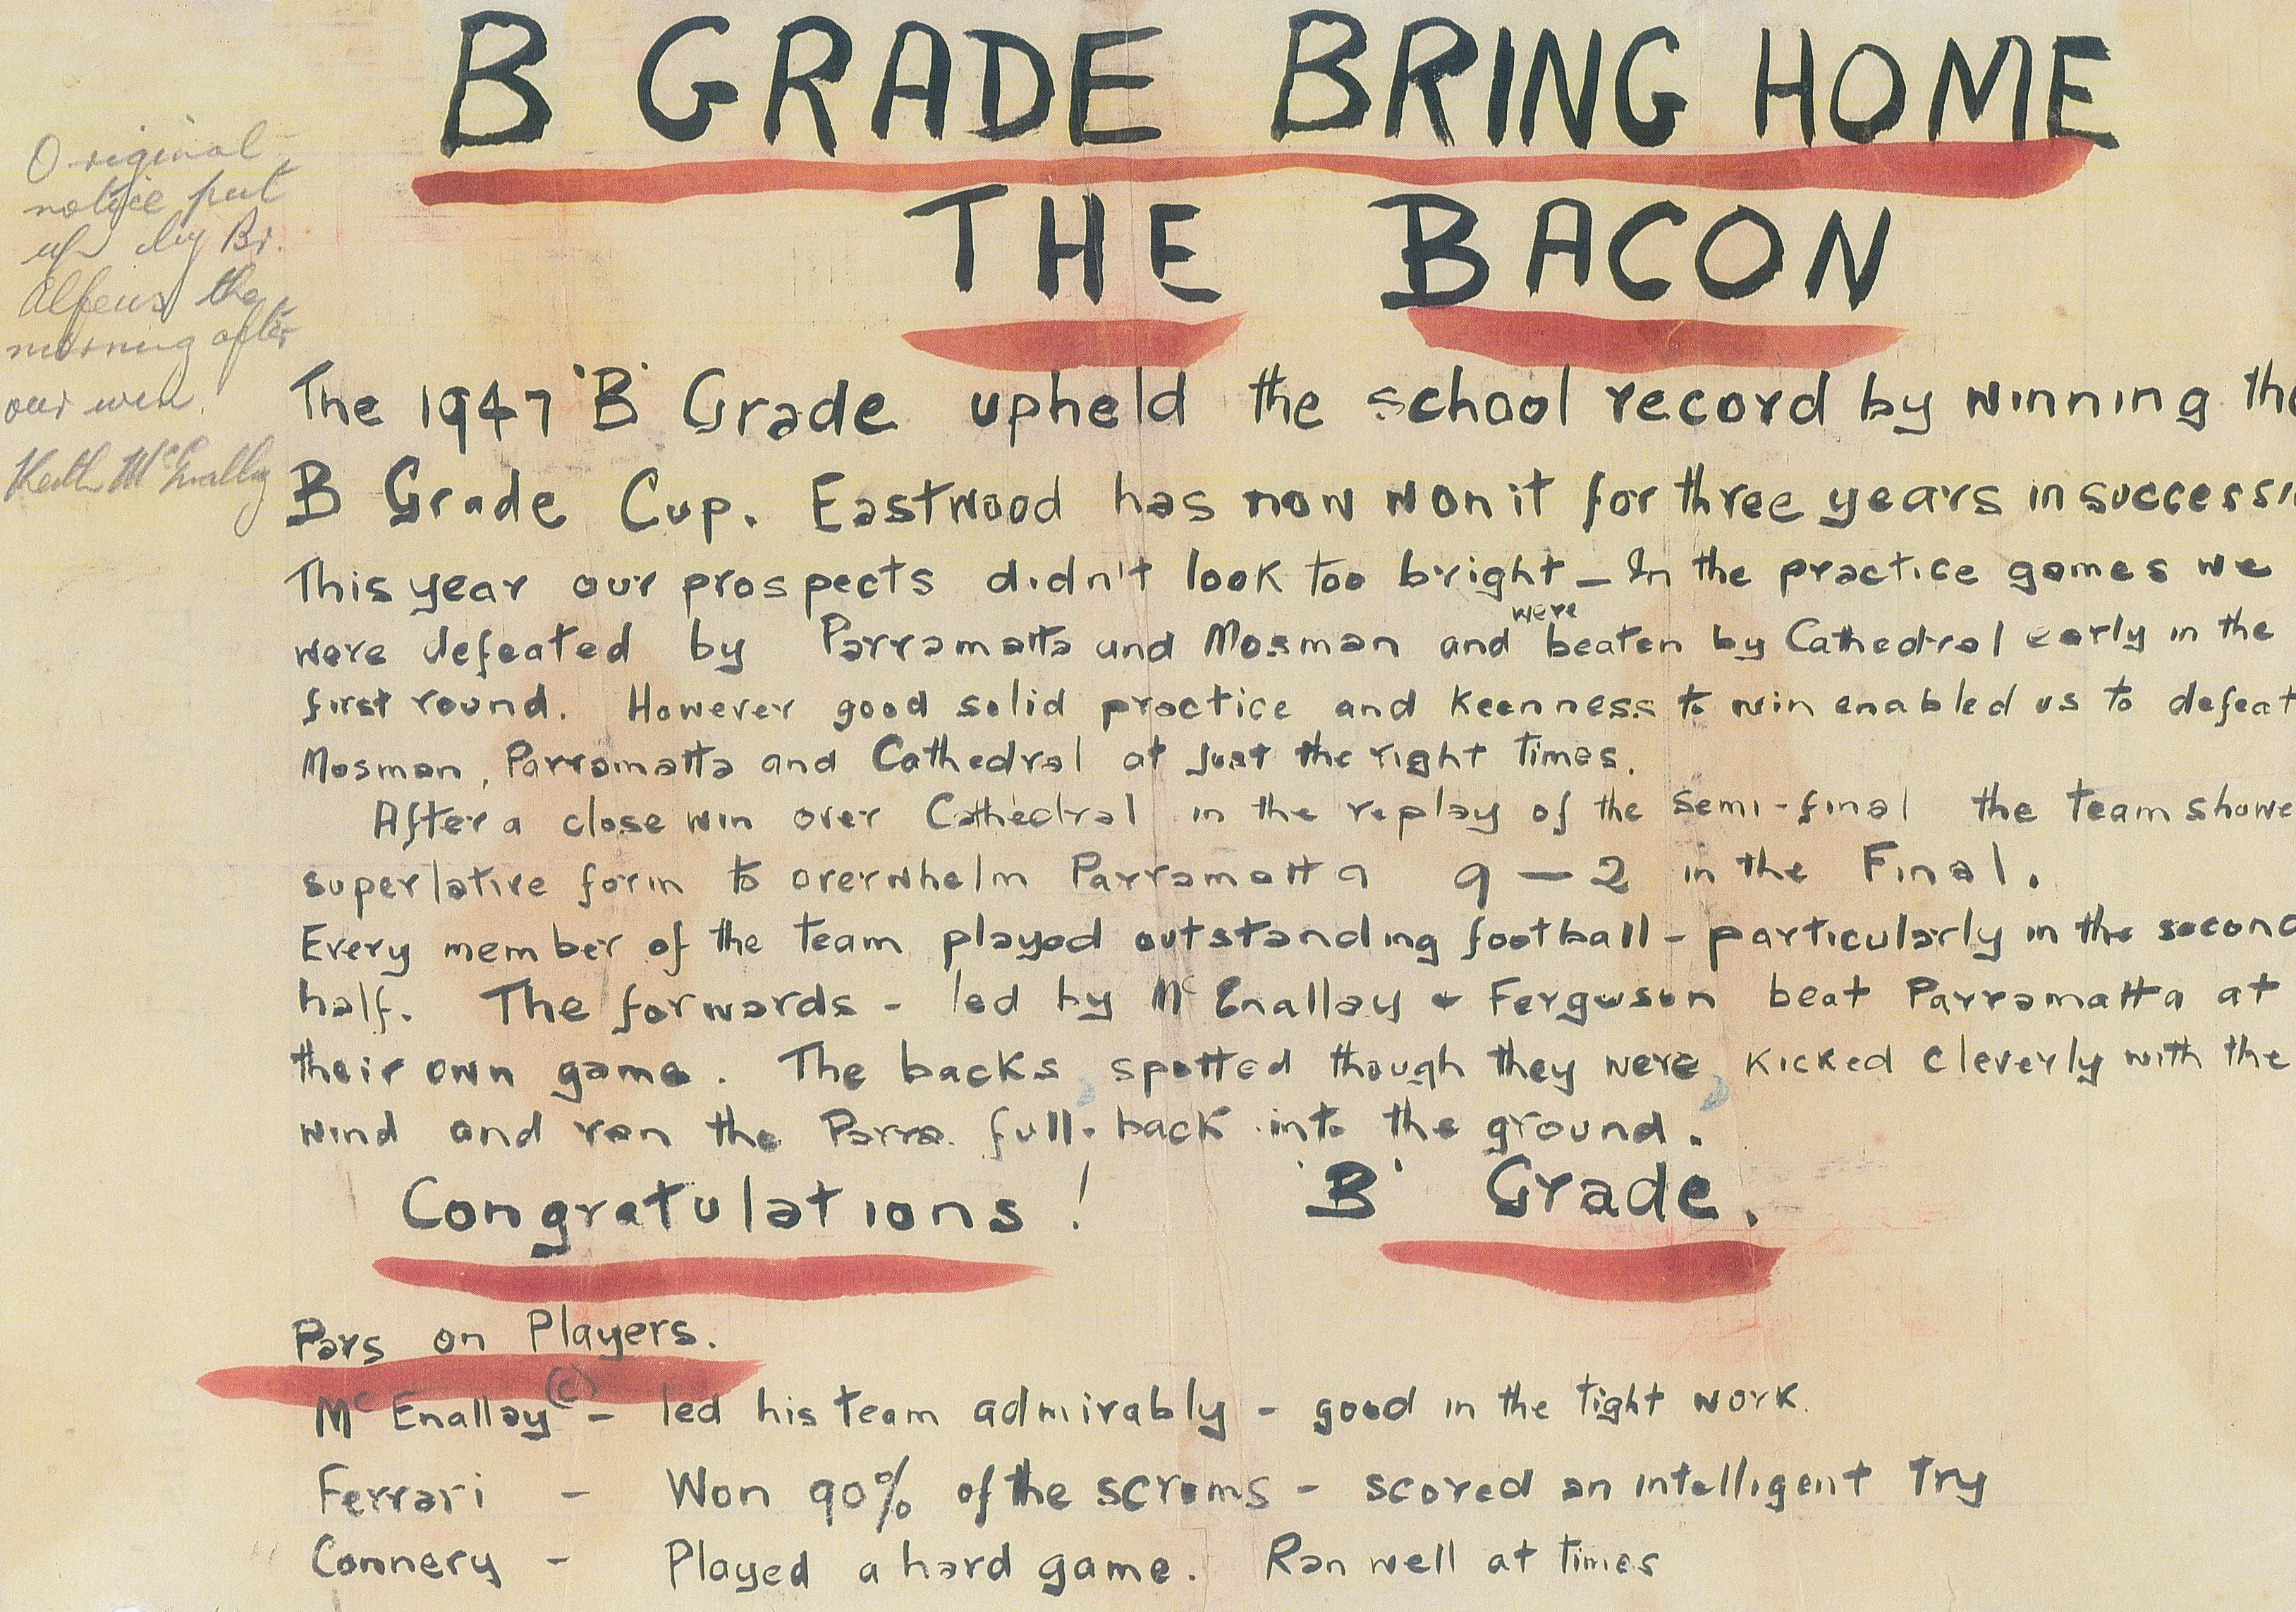 B GRADE BRING HOME
THE BACON
Original
notice put
up by Br.
Alfeus the
morning after
our win.
Keith McEnally
The 1947 'B' Grade upheld the school record by winning the
B Grade Cup. Eastwood has now won it for three years in successi
This year our prospects didn't look too bright – In the practice games we
were defeated by Parramatta and Mosman and were beaten by Cathedral early in the
first round. However good solid practice and keenness to win enabled us to defeat
Mosman, Parramatta and Cathedral at just the right times.
After a close win over Cathedral in the replay of the semi-final the team showe
superlative form to overwhelm Parramatta 9 – 2 in the Final.
Every member of the team played outstanding football – particularly in the second
half. The forwards – led by McEnallay & Ferguson beat Parramatta at
their own game. The backs spotted though they were kicked cleverly with the
wind and ran the Parra. full-back into the ground.
Congratulations! 'B' Grade.
Pars on Players.
McEnallay (c) – led his team admirably – good in the tight work.
Ferrari – Won 90% of the scrums – scored an intelligent try
Connery – Played a hard game. Ran well at times